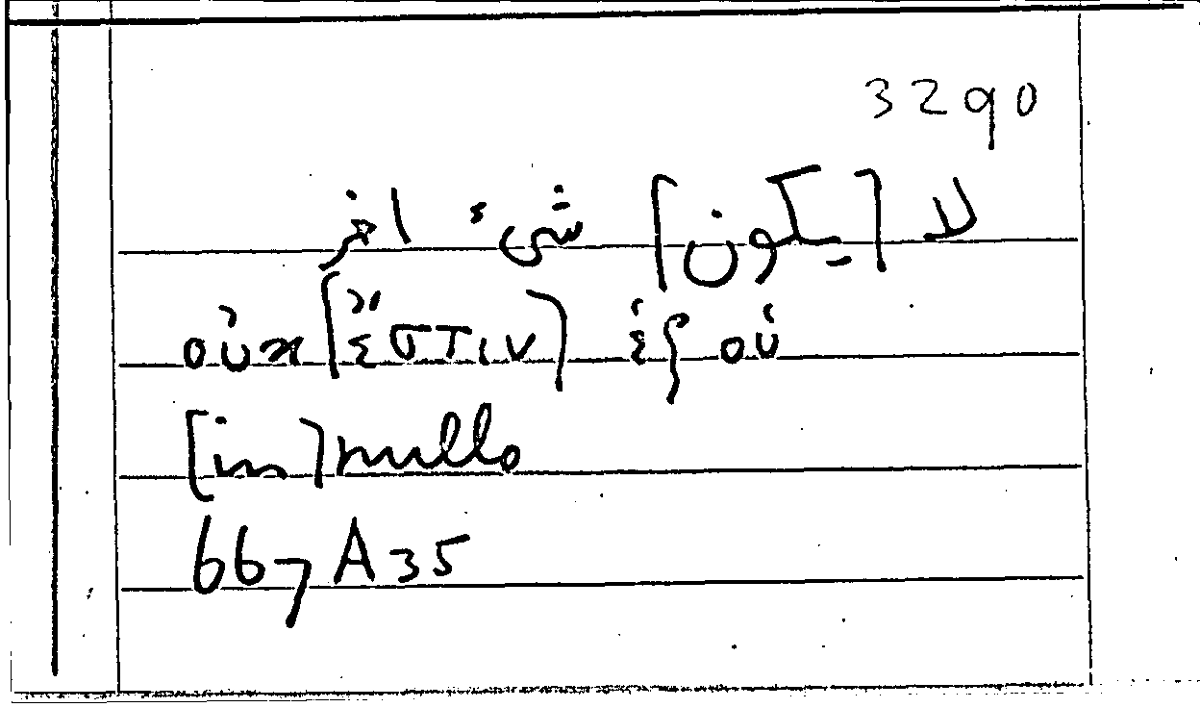 3290
لا [يكون] شىء اخر
οὐκ [ἔστιν] ἐξ οὗ
[in] nullo
667 A 35